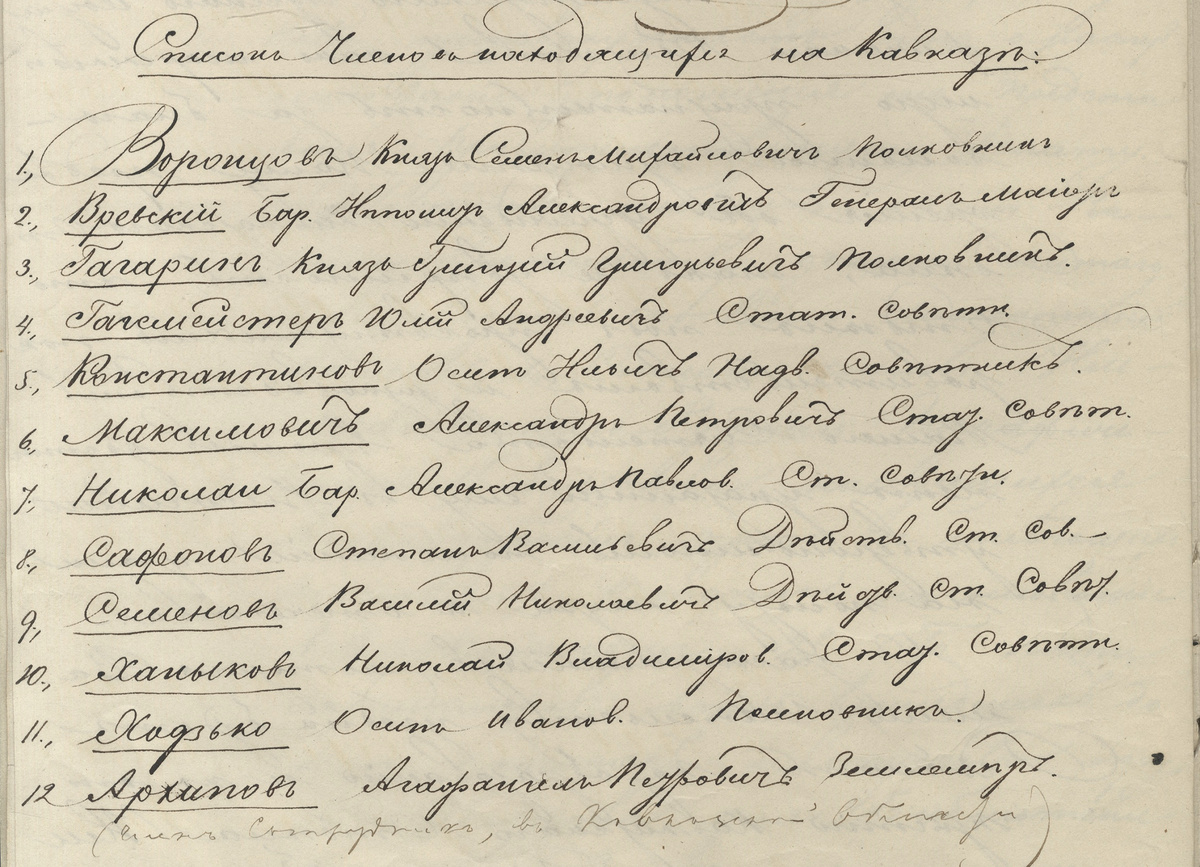 Списокъ Членовъ находящихся на Кавказѣ:
1., Воронцовъ Князь Семенъ Михайловичъ Полковникъ
2., Вревскій Бар. Ипполитъ Александровичъ Генералъ Маіоръ
3., Гагаринъ Князь Григорій Григорьевичъ Полковникъ.
4., Гагемейстеръ Юлій Андреевичъ Стат. Совѣтн.
5., Константиновъ Осипъ Ильичъ Надв. Совѣтникъ.
6., Максимовичъ Александръ Петровичъ Стат. Совѣт.
7., Николаи Бар. Александръ Павлов. Ст. Совѣтн.
8., Сафоновъ Степанъ Васильевичъ Дѣйств. Ст. Сов.
9., Семеновъ Василій Николаевичъ Дѣйств. Ст. Совѣт.
10., Ханыковъ Николай Владиміров. Стат. Совѣтн.
11., Ходзько Осипъ Иванов. Полковникъ.
12 Архиповъ Агафангелъ Петровичъ Землемѣръ.
(Членъ Сотрудникъ, въ Кавказской Области)